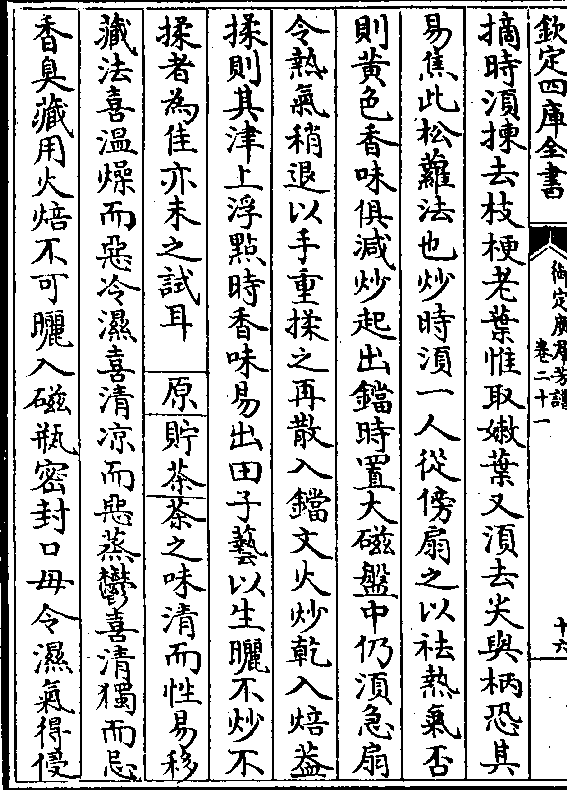 欽定四庫全書
御定廣羣芳譜
卷二十一
十六
摘時須揀去枝梗老葉惟取嫩葉又須去尖與柄恐其
易焦此松蘿法也炒時須一人從傍扇之以祛熱氣否
則黄色香味俱減炒起出鐺時置大磁盤中仍須急扇
令熱氣稍退以手重揉之再散入鐺文火炒乾入焙葢
揉則其津上浮點時香味易出田子藝以生曬不炒不
揉者為佳亦未之試耳 原 貯茶 茶之味清而性易移
藏法喜溫燥而惡冷濕喜清凉而惡蒸鬱喜清獨而忌
香臭藏用火焙不可曬入磁瓶密封口毋令濕氣得侵